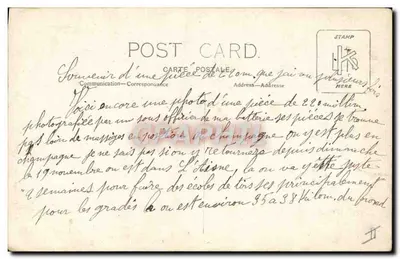 STAMP
POST CARD.
CARTE POSTALE
Communication—Correspondance
Address—Adresse
HERE
Souvenir d'une pièce de que j'ai toujours
Voici encore une photo d'une pièce de 220 millim
photografiée par un sous officier de ma batterie ses pièces se trouve
pas loin de en champagne on est plus en
champagne je ne sais pas si on y retournera depuis dimanche
le 19 novembre on est dans L'Aisne la on va être juste
2 semaines pour faire des écoles de tirs ses principalement
pour les gradés on est environ 35 a 38 kilom. du front
II